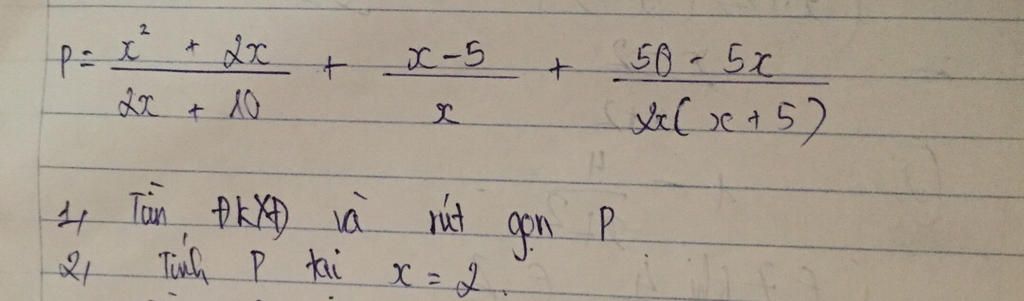 P = (x² + 2x)/(2x + 10) + (x - 5)/x + (50 - 5x)/(2x(x + 5))
1, Tìm ĐKXĐ và rút gọn P
2, Tính P tại x = 2.